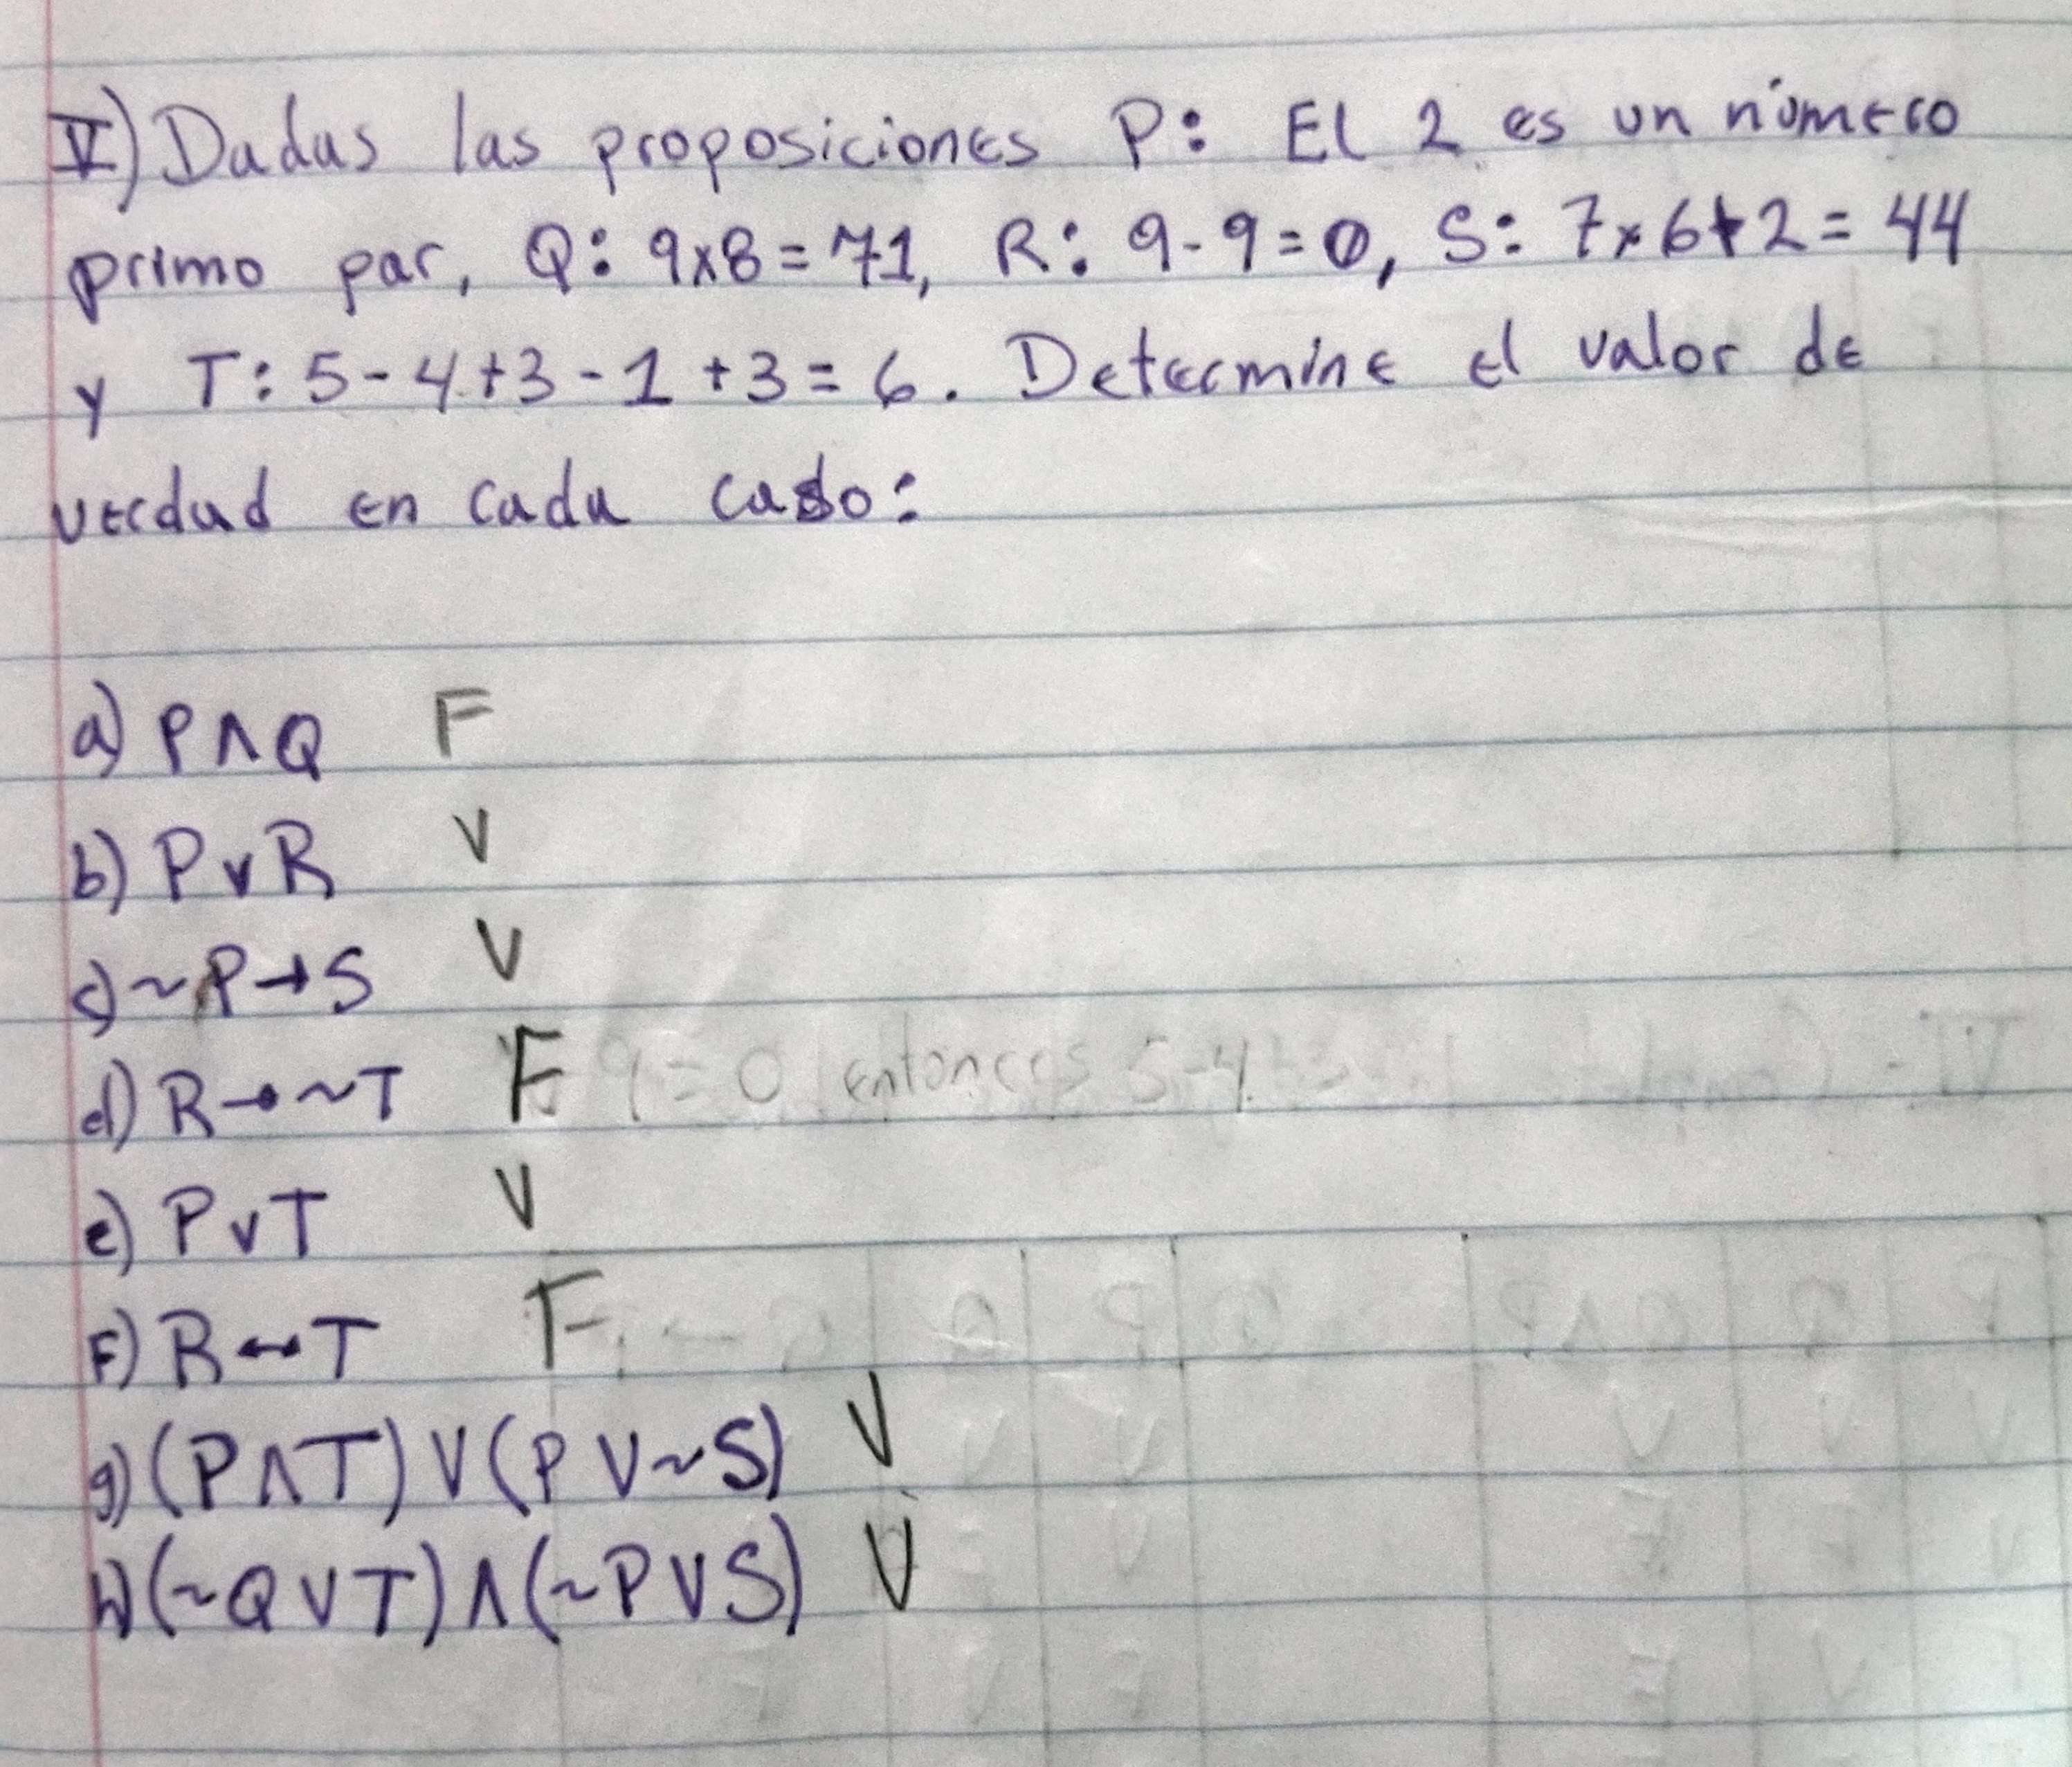 V) Dadas las proposiciones P: El 2 es un número
primo par, Q: 9x8=71, R: 9-9=0, S: 7x6+2=44
y T: 5-4+3-1+3=6. Determine el valor de
verdad en cada caso:
a) P∧Q F
b) P∨R V
c) ~P→S V
d) R→~T F 9=0 entonces 5-4
e) P∨T V
F) R↔T F
g) (P∧T)∨(P∨~S) V
h) (~Q∨T)∧(~P∨S) V